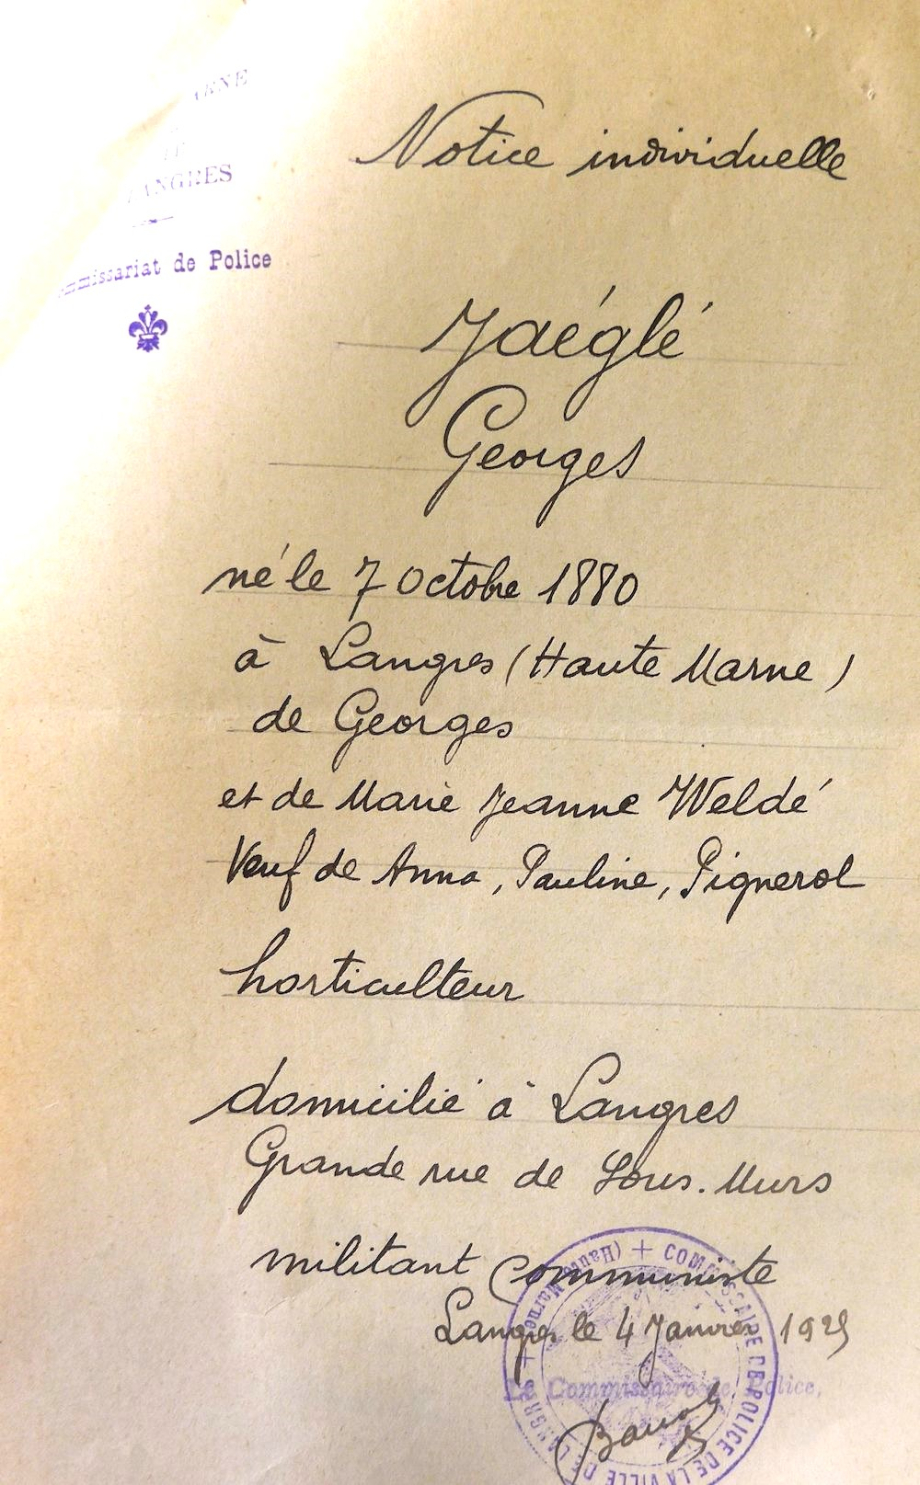 LANGRES
Commissariat de Police
Notice individuelle
Jaéglé
Georges
né le 7 Octobre 1880
à Langres (Haute Marne)
de Georges
et de Marie Jeanne Weldé
Veuf de Anna, Pauline, Pignerol
horticulteur
domicilié à Langres
Grande rue de Sous-Murs
militant Communiste
Langres le 4 Janvier 1929
Le Commissaire de Police,
COMMISSAIRE DE POLICE DE LA VILLE DE LANGRES + (Haute Marne) +